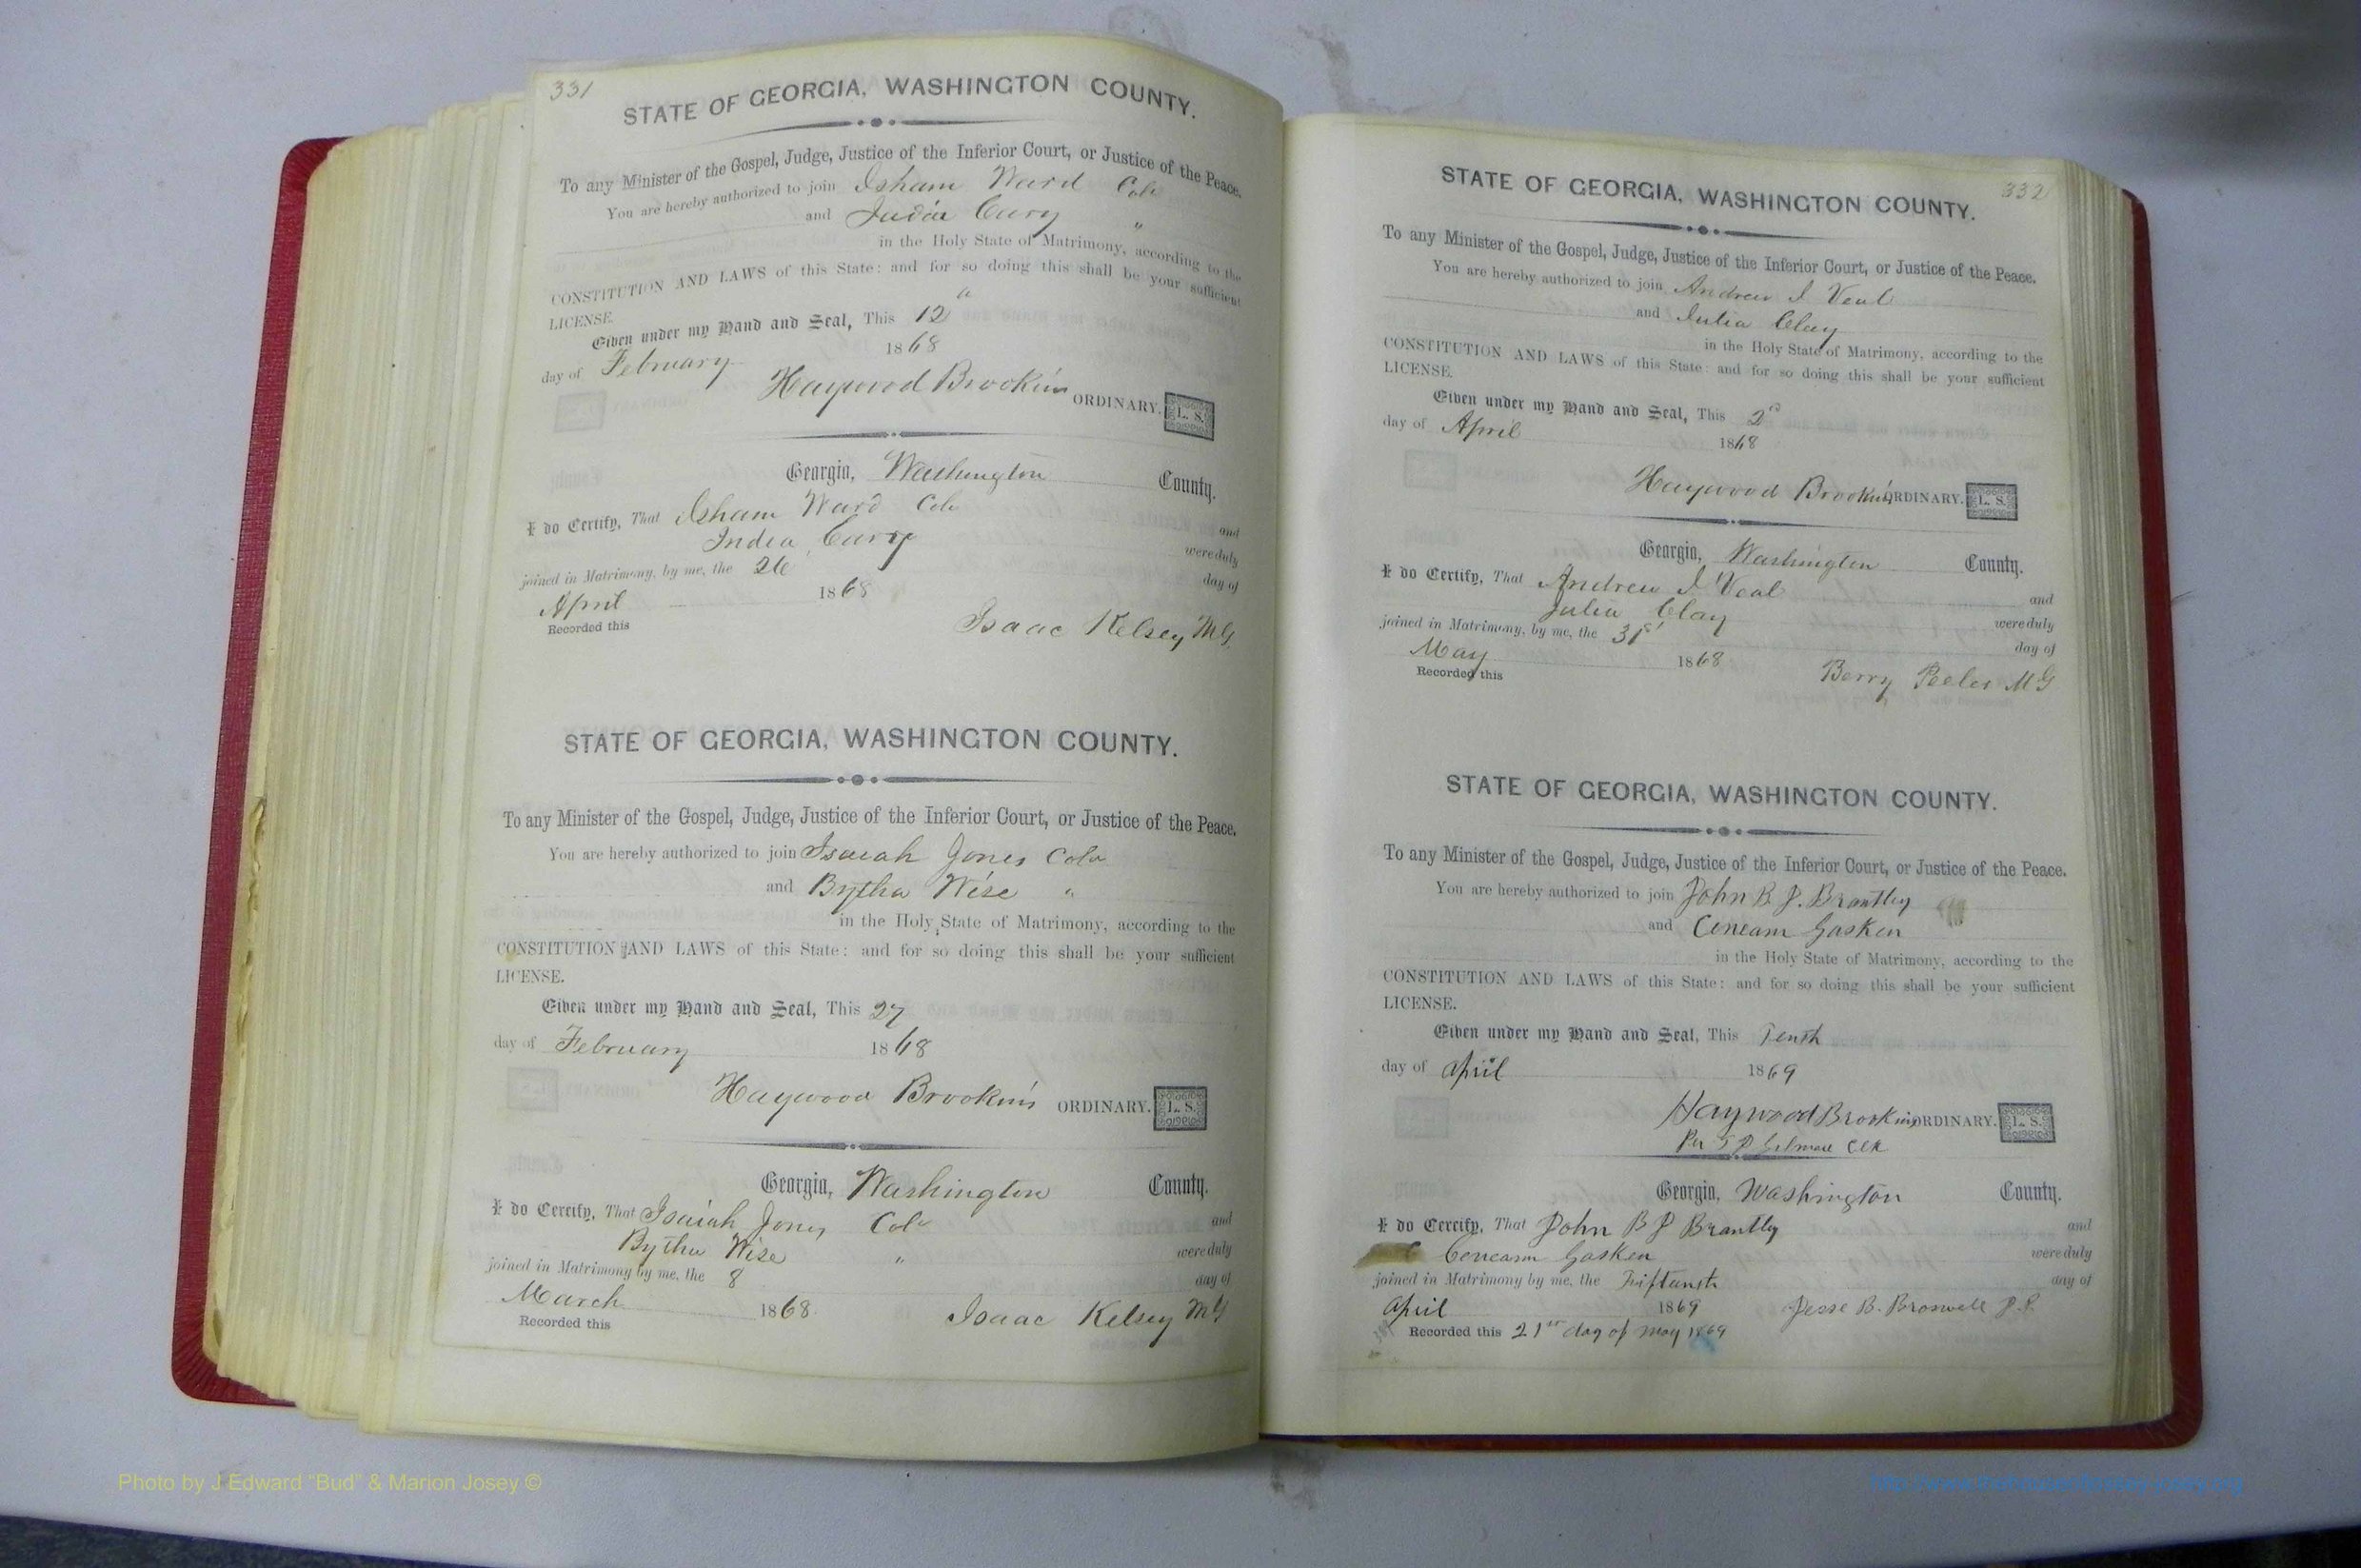 331
STATE OF GEORGIA, WASHINGTON COUNTY.
To any Minister of the Gospel, Judge, Justice of the Inferior Court, or Justice of the Peace.
You are hereby authorized to join Isham Ward Cold
and India Curry "
in the Holy State of Matrimony, according to the
CONSTITUTION AND LAWS of this State: and for so doing this shall be your sufficient
LICENSE.
Given under my Hand and Seal, This 12
day of February 1868
Haywood Brookins ORDINARY. L. S.
Georgia, Washington County.
I do Certify, That Isham Ward Cold and
India Curry were duly
joined in Matrimony, by me, the 26 day of
April 1868
Isaac Kelsey MG
Recorded this
STATE OF GEORGIA, WASHINGTON COUNTY.
To any Minister of the Gospel, Judge, Justice of the Inferior Court, or Justice of the Peace.
You are hereby authorized to join Isaiah Jones Cold
and Bytha Wise "
in the Holy State of Matrimony, according to the
CONSTITUTION AND LAWS of this State: and for so doing this shall be your sufficient
LICENSE.
Given under my Hand and Seal, This 27
day of February 1868
Haywood Brookins ORDINARY. L. S.
Georgia, Washington County.
I do Certify, That Isaiah Jones Cold and
Bytha Wise " were duly
joined in Matrimony by me, the 8 day of
March 1868 Isaac Kelsey MG
Recorded this
332
STATE OF GEORGIA, WASHINGTON COUNTY.
To any Minister of the Gospel, Judge, Justice of the Inferior Court, or Justice of the Peace.
You are hereby authorized to join Andrew J Veal
and Julia Clay
in the Holy State of Matrimony, according to the
CONSTITUTION AND LAWS of this State: and for so doing this shall be your sufficient
LICENSE.
Given under my Hand and Seal, This 2d
day of April 1868
Haywood Brookins ORDINARY. L. S.
Georgia, Washington County.
I do Certify, That Andrew J Veal and
Julia Clay were duly
joined in Matrimony, by me, the 31st day of
May 1868 Berry Peeler MG
Recorded this
STATE OF GEORGIA, WASHINGTON COUNTY.
To any Minister of the Gospel, Judge, Justice of the Inferior Court, or Justice of the Peace.
You are hereby authorized to join John B J. Brantley
and Ceneam Gasken
in the Holy State of Matrimony, according to the
CONSTITUTION AND LAWS of this State: and for so doing this shall be your sufficient
LICENSE.
Given under my Hand and Seal, This Tenth
day of April 1869
Haywood Brookins ORDINARY. L. S.
Per Gilmore Clk
Georgia, Washington County.
I do Certify, That John B J Brantly and
Ceneam Gasken were duly
joined in Matrimony by me, the day of
April 1869 Jesse B. Braswell J.P.
Recorded this 21st day of May 1869
Photo by J Edward "Bud" & Marion Josey ©